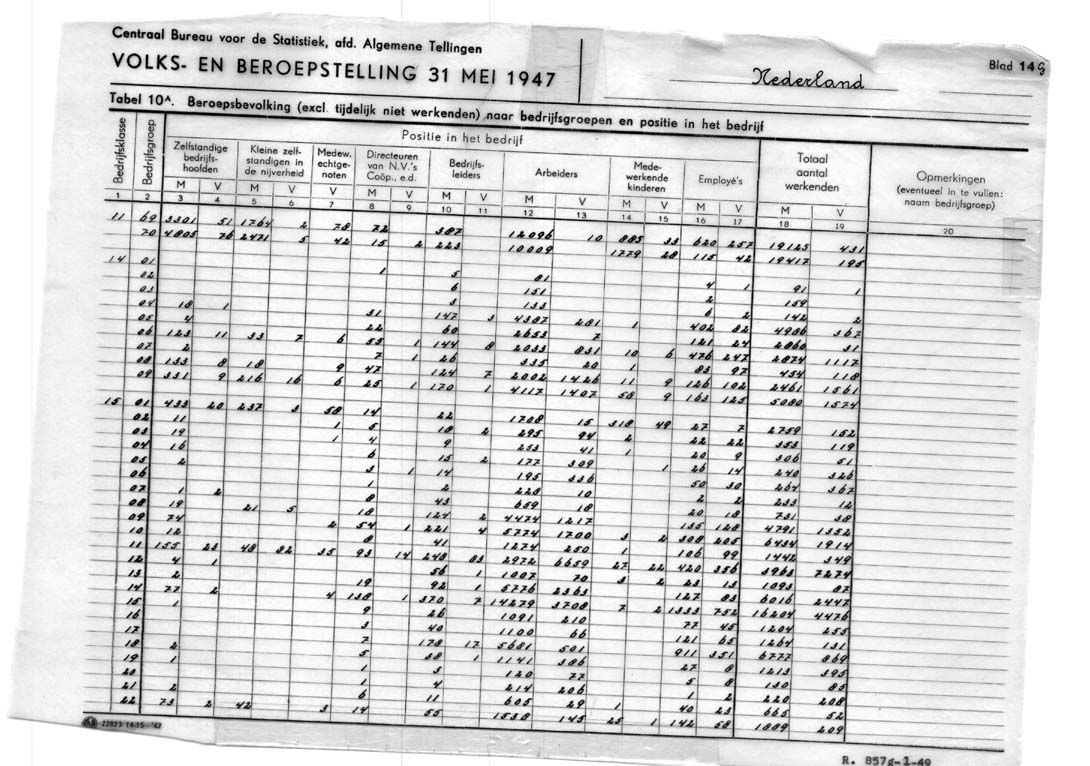 Centraal Bureau voor de Statistiek, afd. Algemene Tellingen
VOLKS- EN BEROEPSTELLING 31 MEI 1947
Nederland
Blad 14 G
Tabel 10^A. Beroepsbevolking (excl. tijdelijk niet werkenden) naar bedrijfsgroepen en positie in het bedrijf
Bedrijfsklasse
Bedrijfsgroep
Positie in het bedrijf
Zelfstandige bedrijfs-hoofden
Kleine zelf-standigen in de nijverheid
Medew. echtge-noten
Directeuren van N.V.'s Coöp., e.d.
Bedrijfs-leiders
Arbeiders
Mede-werkende kinderen
Employé's
Totaal aantal werkenden
Opmerkingen (eventueel in te vullen: naam bedrijfsgroep)
M V M V V M V M V M V M V M V M V
1 2 3 4 5 6 7 8 9 10 11 12 13 14 15 16 17 18 19 20
11 69 3301 51 1764 2 78 72 387 12096 10 885 33 620 257 19125 431
70 4805 76 2471 5 42 15 2 223 10009 1779 28 115 42 19417 195
14 01 1 5 81 4 1 91 1
02 6 151 2 159
03 3 133 6 2 142 2
04 18 1 31 147 3 4387 281 1 402 82 4986 367
05 4 22 60 2653 7 121 24 2860 31
06 123 11 33 7 6 55 1 144 8 2033 831 10 6 476 247 2874 1117
07 2 7 1 26 335 20 1 83 97 454 118
08 133 8 18 9 47 124 7 2002 1426 11 9 126 102 2461 1561
09 331 9 216 16 6 25 1 170 1 4117 1407 58 9 163 125 5080 1574
15 01 433 20 237 3 58 14 22 1708 15 318 49 27 7 2759 152
02 11 1 5 18 2 295 94 2 22 22 353 119
03 19 1 4 9 253 41 1 20 9 306 51
04 16 6 15 2 177 309 1 26 14 240 326
05 2 3 1 14 195 336 50 30 264 367
06 1 2 228 10 2 2 233 12
07 1 2 8 43 659 18 20 18 731 38
08 19 21 5 18 124 2 4474 1217 135 128 4791 1352
09 74 2 54 1 221 4 5774 1700 3 2 308 205 6434 1914
10 12 8 41 1274 250 1 106 99 1442 349
11 155 23 48 82 35 93 14 248 83 2972 6659 27 22 420 356 3963 7274
12 4 1 56 1 1007 70 3 2 23 13 1093 87
13 2 19 92 1 5776 2363 127 83 6016 2447
14 77 2 4 138 1 370 7 14279 3708 7 2 1333 752 16204 4476
15 1 9 26 1091 210 77 45 1204 255
16 3 40 1100 66 121 65 1264 131
17 7 178 17 5681 501 911 351 6777 869
18 2 5 38 1 1141 386 27 8 1213 395
19 1 1 3 120 77 5 8 130 85
20 1 4 214 206 1 2 220 208
21 2 6 11 605 29 1 40 23 665 52
22 73 2 42 3 14 55 1538 145 25 1 142 58 1889 209
22823-14-15-'47
R. 857g-1-49